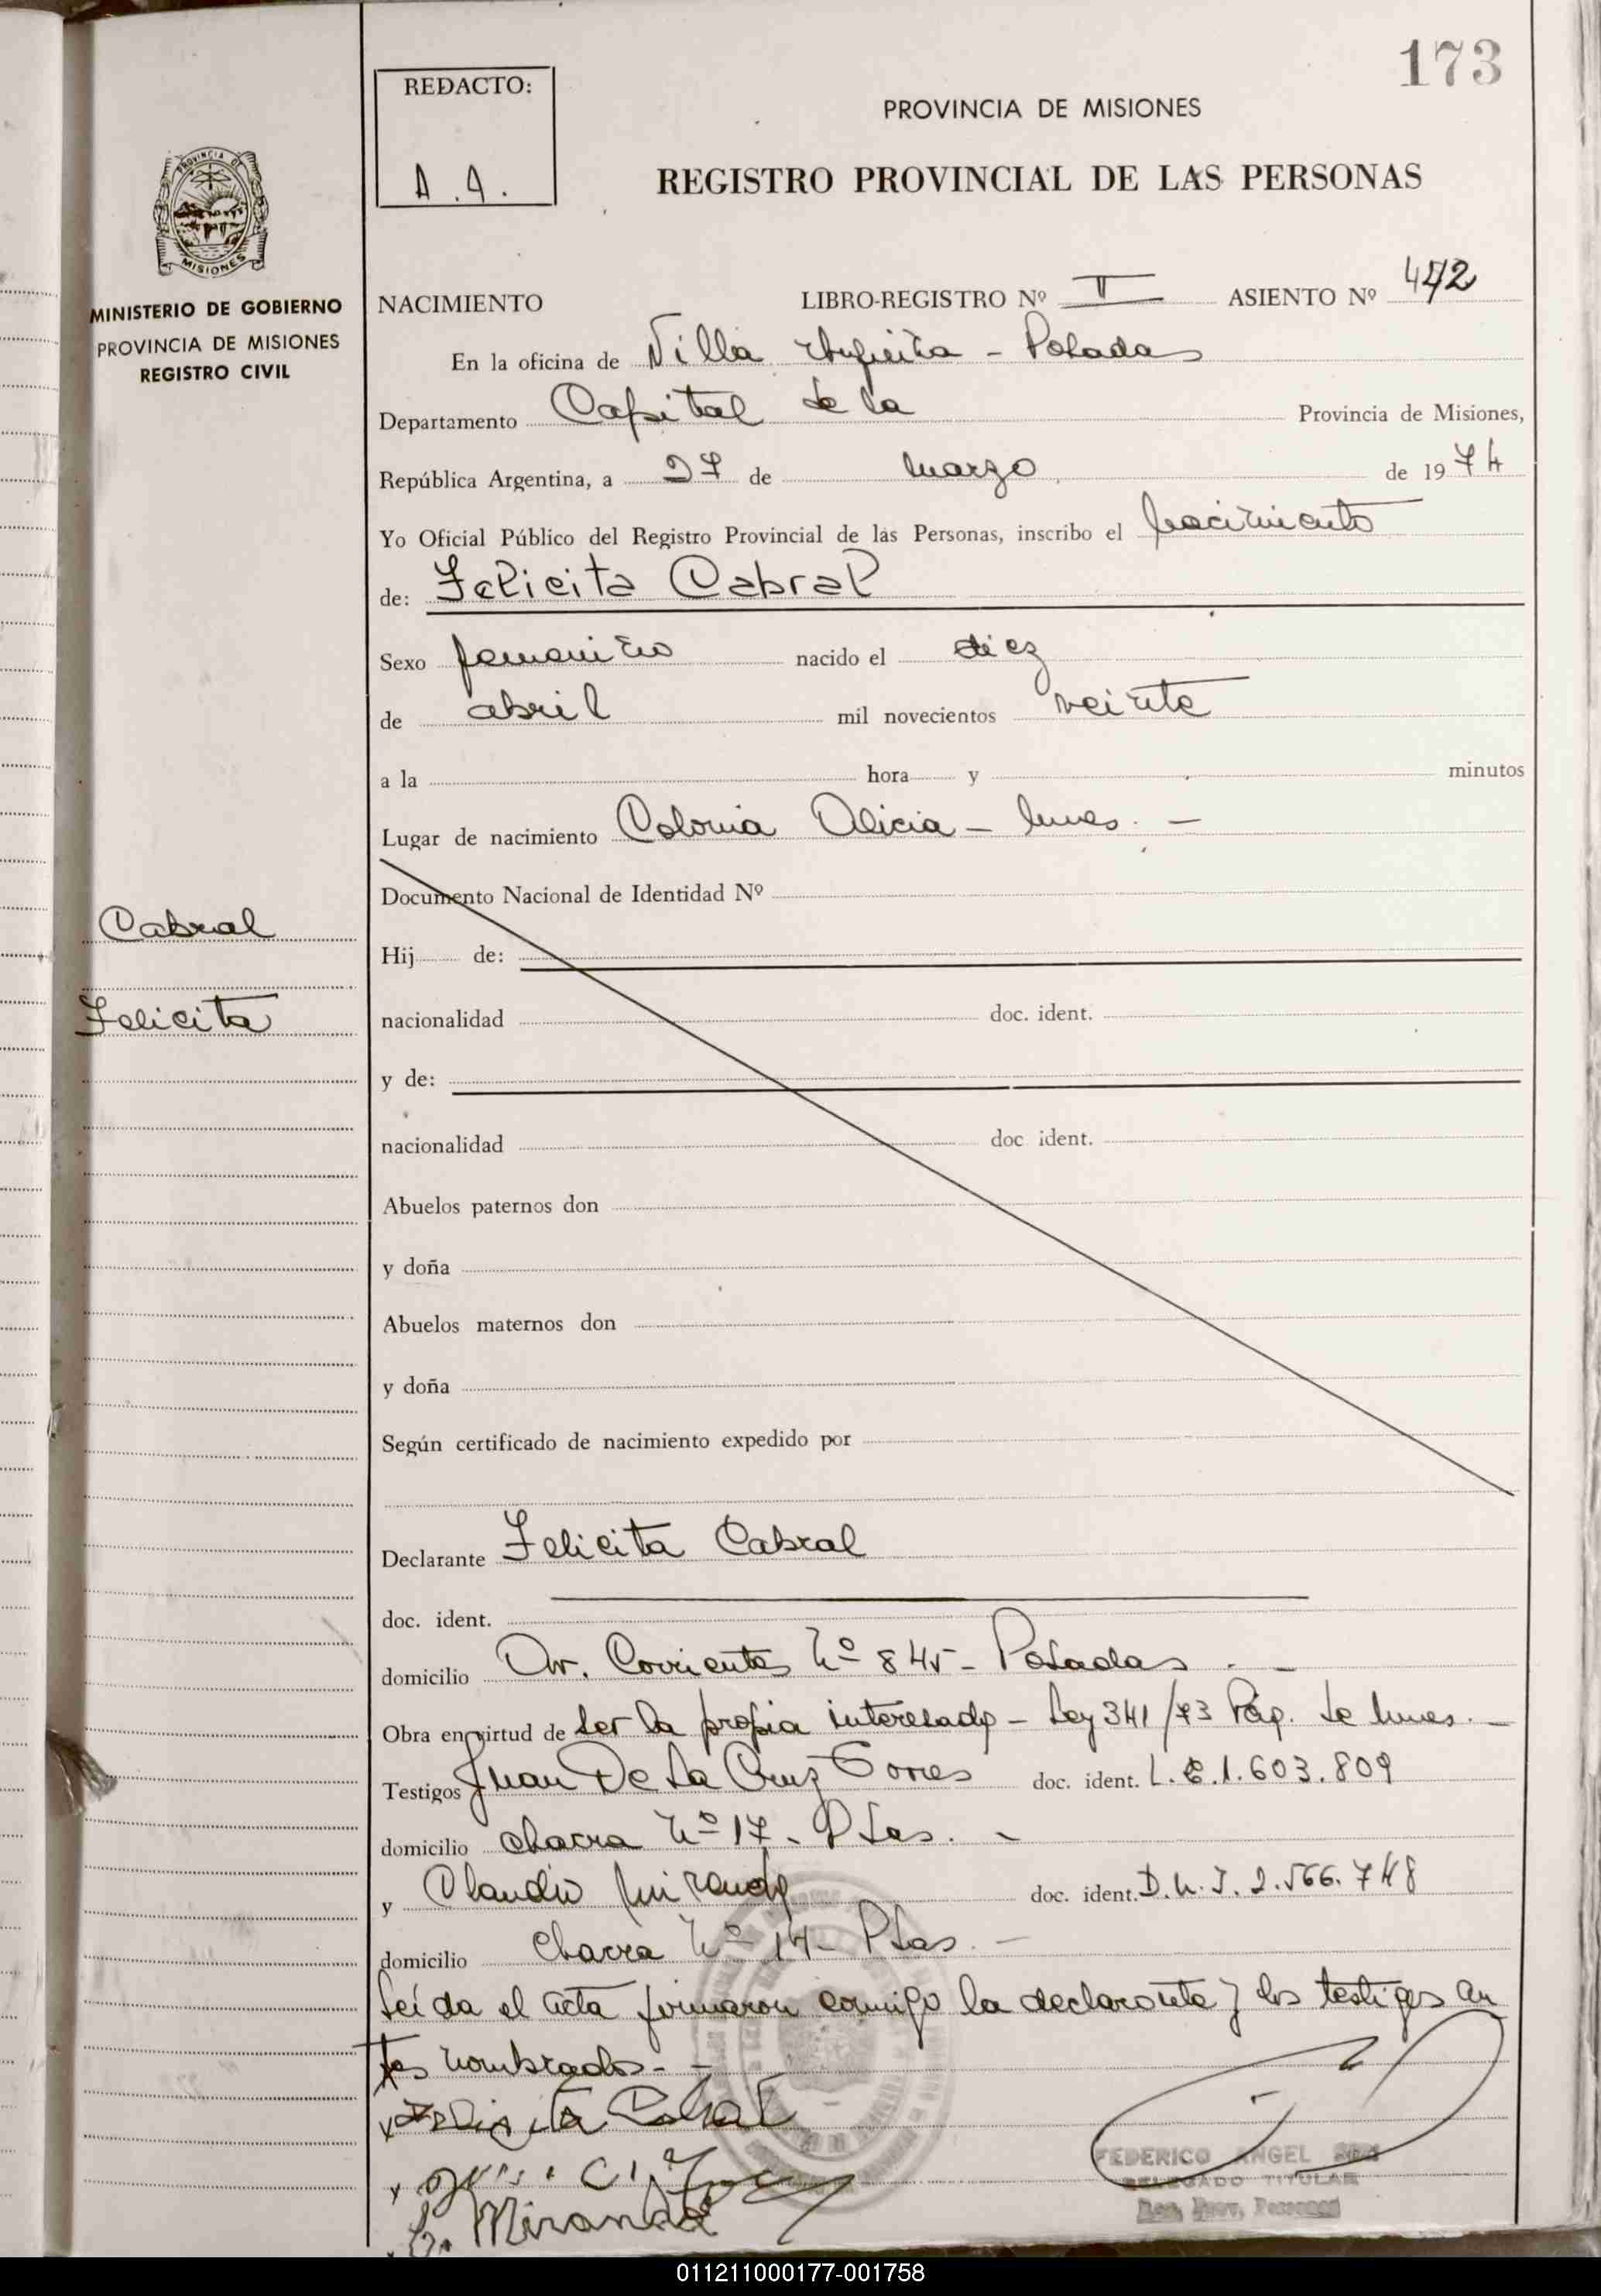 173
REDACTO:
A.A.
PROVINCIA DE MISIONES
REGISTRO PROVINCIAL DE LAS PERSONAS
PROVINCIA DE
MISIONES
MINISTERIO DE GOBIERNO
PROVINCIA DE MISIONES
REGISTRO CIVIL
NACIMIENTO LIBRO-REGISTRO Nº II ASIENTO Nº 472
En la oficina de Villa - Posadas
Departamento Capital de la Provincia de Misiones,
República Argentina, a 27 de marzo de 1974
Yo Oficial Público del Registro Provincial de las Personas, inscribo el nacimiento
de: Felicita Cabral
Sexo femenino nacido el diez
de abril mil novecientos veinte
a la hora y minutos
Lugar de nacimiento Colonia Alicia - Mnes. -
Documento Nacional de Identidad Nº
Cabral
Hij de:
Felicita
nacionalidad doc. ident.
y de:
nacionalidad doc ident.
Abuelos paternos don
y doña
Abuelos maternos don
y doña
Según certificado de nacimiento expedido por
Declarante Felicita Cabral
doc. ident.
domicilio Av. Corrientes Nº 845 - Posadas . -
Obra en virtud de ser la propia interesada - Ley 341/73 de Mnes. -
Testigos Juan De La Cruz Torres doc. ident. L.E.1.603.809
domicilio chacra Nº 17 - Pdas. -
y Claudio Miranda doc. ident. D.N.I. 2.566.748
domicilio chacra Nº 14 - Pdas. -
Leída el acta firmaron conmigo la declarante y los testigos an
tes nombrados. -
x Felicita Cabral
Miranda
FEDERICO ANGEL
DELEGADO TITULAR
Reg. Prov. Personas
011211000177-001758